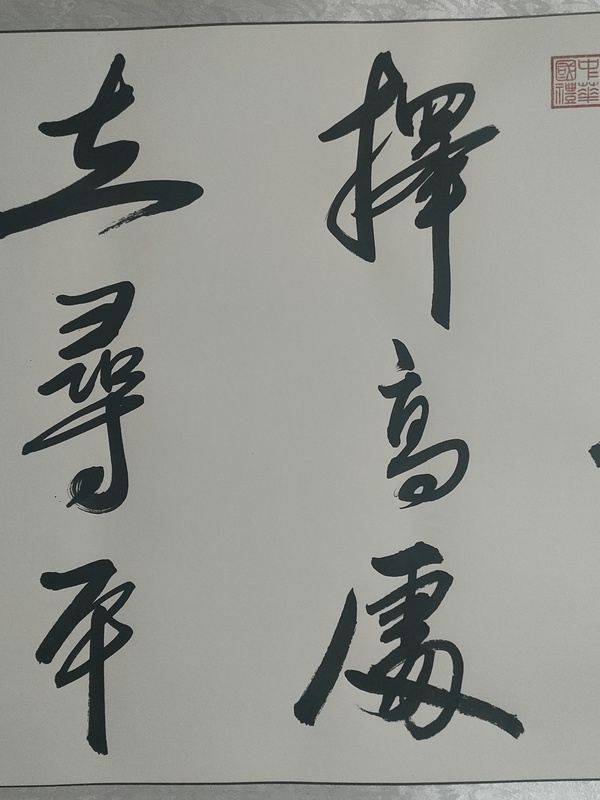 中華國禮
擇高處
立尋平